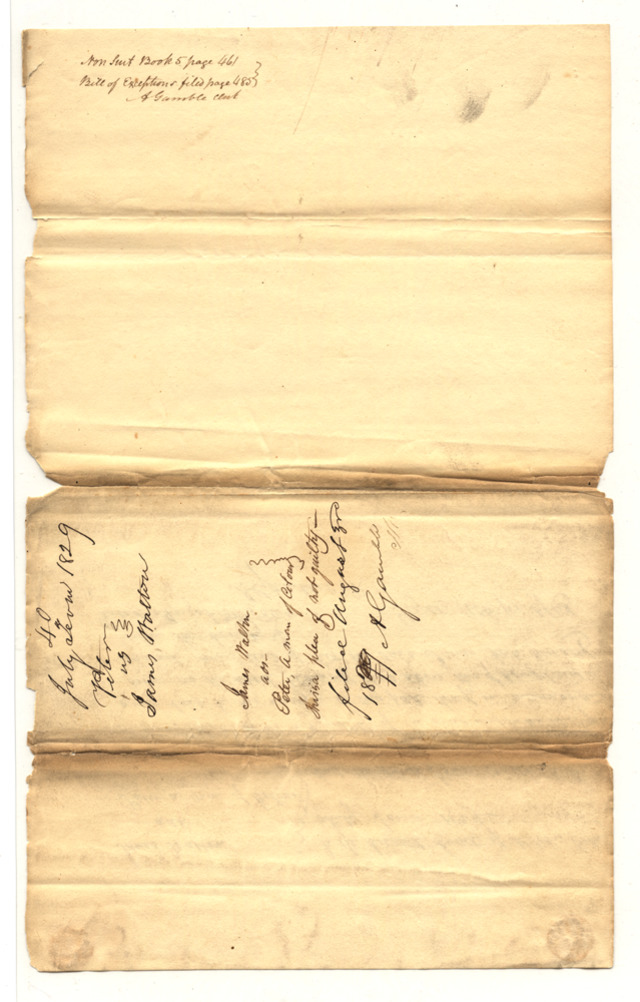 Non Suit Book 5 page 461
Bill of Exceptions filed page 485
A Gamble clerk
40
July term 1829
Peter
vs
James Walton
James Walton
ads
Peter, a man of Colour
plea not guilty
filed August 3rd
1829
A Gamble